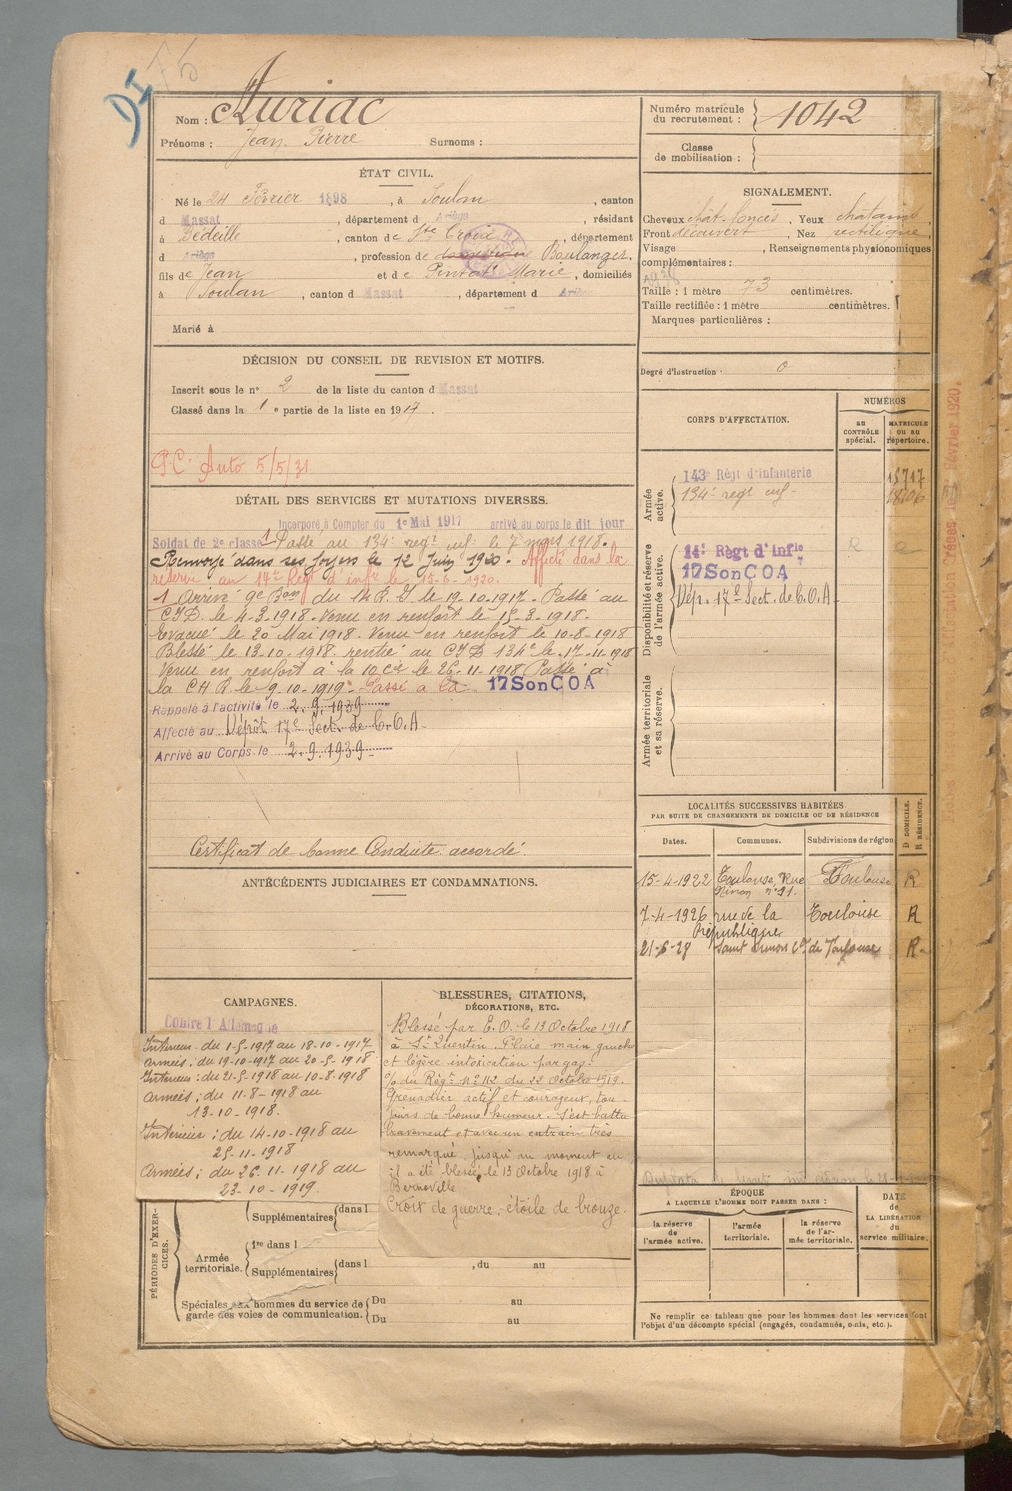 Nom : Auriac
Prénoms : Jean Pierre Surnoms :
ÉTAT CIVIL.
Né le 24 Février 1898, à Soulan, canton
d Massat, département d Ariège, résidant
à Bédeille, canton de Ste Croix, département
d Ariège, profession de Boulanger,
fils de Jean et de Marie, domiciliés
à Soulan, canton d Massat, département d Ariège
Marié à
DÉCISION DU CONSEIL DE REVISION ET MOTIFS.
Inscrit sous le n° 2 de la liste du canton d Massat
Classé dans la 1e partie de la liste en 1917.
P.C. Auto 5/5/31
DÉTAIL DES SERVICES ET MUTATIONS DIVERSES.
Incorporé à Compter du 1e Mai 1917 arrivé au corps le dit jour
Soldat de 2e classe Passé au 134e regt inf. le 7 mars 1918.
Renvoyé dans ses foyers le 12 Juin 1920. Affecté dans la
réserve au 14e Régt d'infie le 15-6-1920.
du M.R.I le 19.10.1917. Passé au
C.I.D. le 4-3-1918. Venu en renfort le 1918.
Evacué le 20 Mai 1918. Venu en renfort le 10-8-1918
Blessé le 13-10-1918. rentré au C.I.D 134e le 17-11-1918
Venu en renfort à la 10 Cie le 26-11-1918 Passé à
la C H R. le 9.10.1919. Passé à la 17SonCOA
Rappelé à l'activité le 2.9.1939
Affecté au Dépôt 17e Sect. de C.O.A
Arrivé au Corps le 2.9.1939
Certificat de bonne Conduite: accordé.
ANTÉCÉDENTS JUDICIAIRES ET CONDAMNATIONS.
CAMPAGNES.
Contre l'Allemagne
Intérieur - du 1-5-1917 au 18-10-1917
Armées: du 19-10-1917 au 20-5-1918
Intérieur: du 21-5-1918 au 10-8-1918
Armées; du 11-8-1918 au
13-10-1918.
Intérieur; du 14-10-1918 au
25-11-1918
Armées; du 26-11-1918 au
23-10-1919.
BLESSURES, CITATIONS,
DÉCORATIONS, ETC.
Blessé par E.O. le 13 Octobre 1918
à St Quentin. Plaie main gauche
et légère intoxication par gaz.
% du Régt n° 112 du 22 Octobre 1919.
Grenadier actif et courageux, tou-
jours de bonne humeur. S'est battu
bravement et avec un entrain très
remarqué, jusqu'au moment où
il a été blessé, le 13 Octobre 1918 à
Bernoville
Croix de guerre, étoile de bronze.
PÉRIODES D'EXER-
CICES.
Supplémentaires dans l
Armée
territoriale.
1re dans l
Supplémentaires dans l , du au
Spéciales aux hommes du service de
garde des voies de communication.
Du au
Du au
Numéro matricule
du recrutement : 1042
Classe
de mobilisation :
SIGNALEMENT.
Cheveux chât. foncés, Yeux châtains,
Front découvert, Nez rectiligne,
Visage , Renseignements physionomiques
complémentaires :
Taille : 1 mètre 73 centimètres.
Taille rectifiée : 1 mètre centimètres.
Marques particulières :
Degré d'instruction : 0
CORPS D'AFFECTATION.
NUMÉROS
au
CONTRÔLE
spécial.
MATRICULE
ou au
répertoire.
Armée
active.
143e Régt d'Infanterie
134e regt inf.
Disponibilité et réserve
de l'armée active.
14e Règt d'Infie
17SonCOA
Dép. 17e Sect. de C.O.A
Armée territoriale
et sa réserve.
LOCALITÉS SUCCESSIVES HABITÉES
PAR SUITE DE CHANGEMENTS DE DOMICILE OU DE RÉSIDENCE
Dates. Communes. Subdivisions de région
D DOMICILE.
R RÉSIDENCE.
15-4-1922 Toulouse, Rue Toulouse R
n° 21.
7-4-1926 rue de la Toulouse R
République
21-6-28 R
ÉPOQUE
A LAQUELLE L'HOMME DOIT PASSER DANS :
la réserve
de
l'armée active.
l'armée
territoriale.
la réserve
de l'ar-
mée territoriale.
DATE
de
LA LIBÉRATION
du
service militaire.
Ne remplir ce tableau que pour les hommes dont les services font
l'objet d'un décompte spécial (engagés, condamnés, omis, etc.).